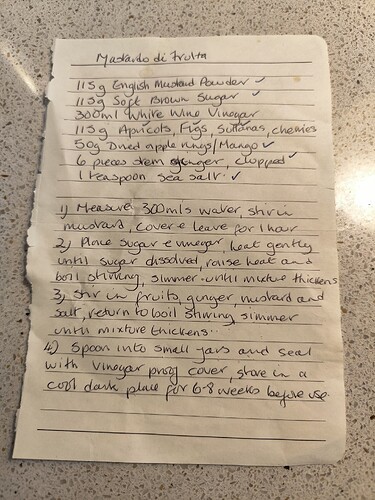 Mustardo di Frutta
115g English Mustard Powder ✓
115g Soft Brown Sugar ✓
300ml White Wine Vinegar
115g Apricots, Figs, Sultanas, cherries
50g Dried apple rings/Mango ✓
6 pieces stem ginger, chopped ✓
1 teaspoon sea salt. ✓
1) Measure 300mls water, stir in
mustard, cover & leave for 1 hour
2) Place sugar & vinegar, heat gently
until sugar dissolved, raise heat and
boil stirring, simmer until mixture thickens
3) Stir in fruits, ginger, mustard and
salt, return to boil stirring simmer
until mixture thickens..
4) Spoon into small jars and seal
with vinegar proof cover, store in a
cool dark place for 6-8 weeks before use.